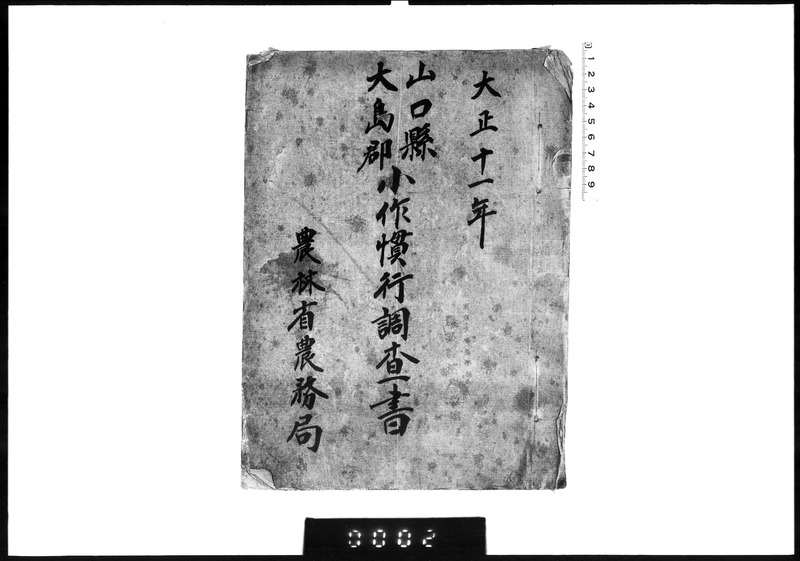 大正十一年
山口縣
大島郡
小作慣行調査書
農林省農務局
1 2 3 4 5 6 7 8 9
0002